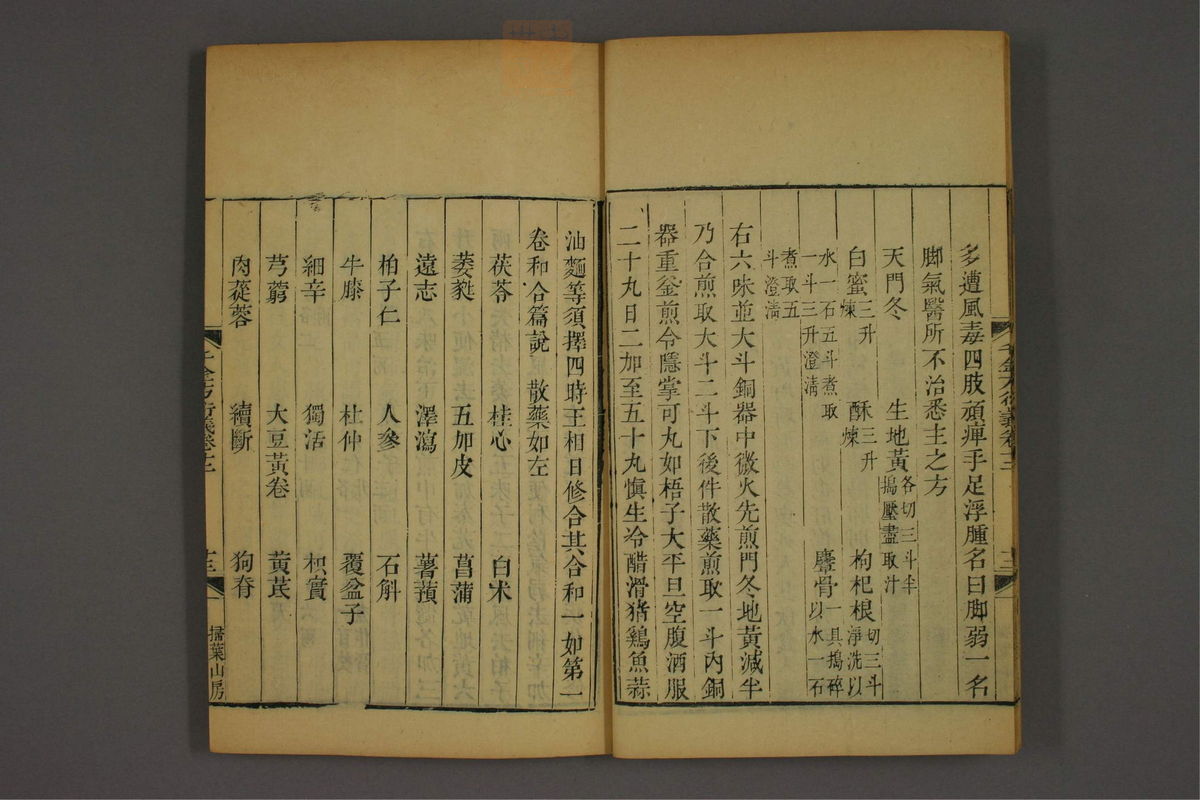 多遭風毒四肢頑痺手足浮腫名曰脚弱一名
脚氣醫所不治悉主之方
天門冬 生地黃各切三斗半搗壓盡取汁 枸杞根切三斗淨洗以
水一石五斗煮取一斗三升澄清
白蜜三升煉 酥三升煉 麞骨一具搗碎以水一石
煮取五斗澄清
右六味並大斗銅器中微火先煎門冬地黃減半
乃合煎取大斗二斗下後件散藥煎取一斗內銅
器重釜煎令隱掌可丸如梧子大平旦空腹酒服
二十丸日二加至五十丸慎生冷醋滑猪鷄魚蒜
油麵等須擇四時王相日修合其合和一如第一
卷和合篇說 散藥如左
茯苓 桂心 白朮
萎蕤 五加皮 菖蒲
遠志 澤瀉 薯蕷
柏子仁 人參 石斛
牛膝 杜仲 覆盆子
細辛 獨活 枳實
芎藭 大豆黃卷 黃芪
肉蓯蓉 續斷 狗脊
千金方衍義卷十二
十三
掃葉山房